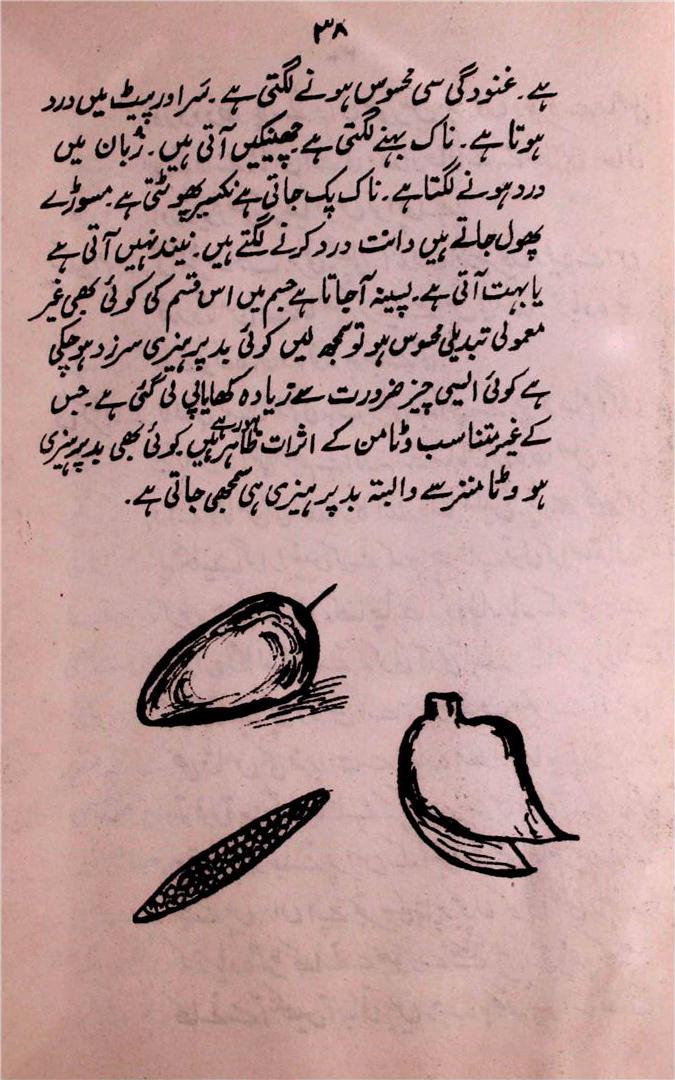 ۳۸
ہے۔ غنودگی سی محسوس ہونے لگتی ہے۔ سَر اور پیٹ میں درد
ہوتا ہے۔ ناک بہنے لگتی ہے۔ چھینکیں آتی ہیں۔ زبان میں
درد ہونے لگتا ہے۔ ناک پک جاتی ہے نکسیر پھوٹتی ہے۔ مسوڑے
پھول جاتے ہیں دانت درد کرنے لگتے ہیں۔ نیند نہیں آتی ہے
یا بہت آتی ہے۔ پسینہ آجاتا ہے جسم میں اس قسم کی کوئی بھی غیر
معمولی تبدیلی محسوس ہو تو سمجھ لیں کوئی بد پرہیزی سرزد ہو چکی
ہے کوئی ایسی چیز ضرورت سے زیادہ کھایا پی لی گئی ہے۔ جس
کے غیر متناسب وٹامن کے اثرات ظاہر ہو رہے ہیں۔ کوئی بھی بد پرہیزی
ہو وٹامنز سے وابستہ بد پرہیزی ہی سمجھی جاتی ہے۔